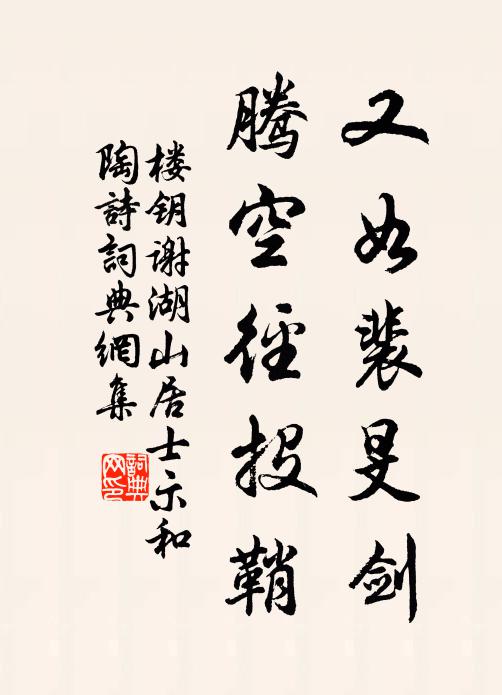 又如裴旻剑
腾空径投鞘
楼钥谢湖山居士示和
陶詩詞典網集
詞典
网印